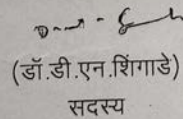 (डॉ.डी.एन.शिंगाडे)
सदस्य